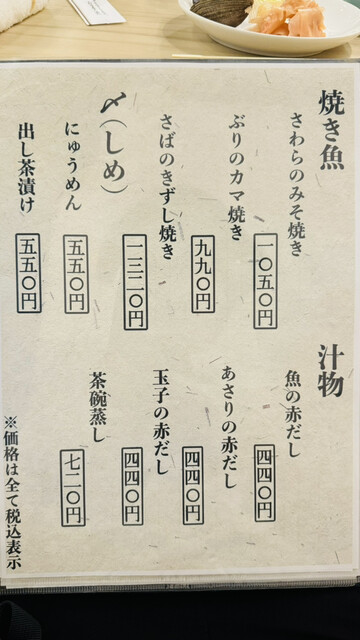 焼き魚
さわらのみそ焼き
一〇五〇円
ぶりのカマ焼き
九九〇円
さばのきずし焼き
一三二〇円
〆（しめ）
にゅうめん
五五〇円
出し茶漬け
五五〇円
汁物
魚の赤だし
四四〇円
あさりの赤だし
四四〇円
玉子の赤だし
四四〇円
茶碗蒸し
七二〇円
※価格は全て税込表示